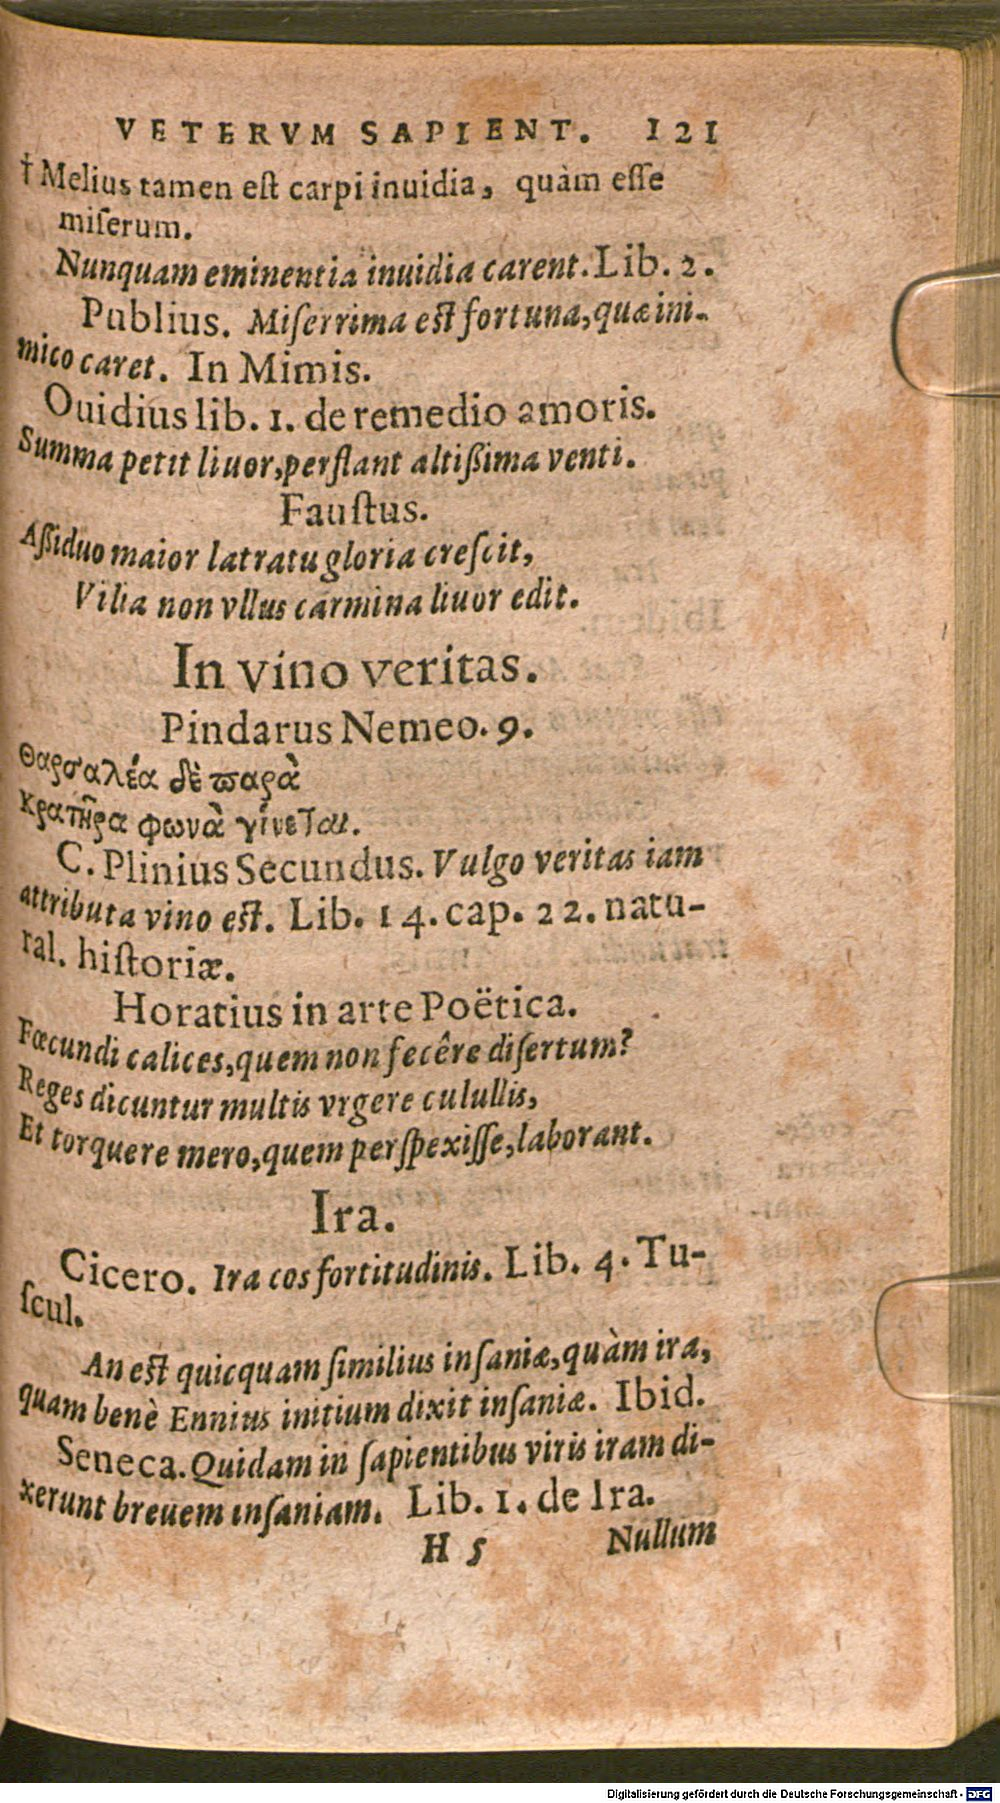 VETERVM SAPIENT. 121
† Melius tamen est carpi inuidia, quàm esse
miserum.
Nunquam eminentia inuidia carent. Lib. 2.
Publius. Miserrima est fortuna, quæ ini-
mico caret. In Mimis.
Ouidius lib. 1. de remedio amoris.
Summa petit liuor, perflant altißima venti.
Faustus.
Aßiduo maior latratu gloria crescit,
Vilia non vllus carmina liuor edit.
In vino veritas.
Pindarus Nemeo. 9.
Θαρσαλέα δὲ παρὰ
Κρατῆρα φωνὰ γίνεται.
C. Plinius Secundus. Vulgo veritas iam
attributa vino est. Lib. 14. cap. 22. natu-
ral. historiæ.
Horatius in arte Poëtica.
Fœcundi calices, quem non fecêre disertum?
Reges dicuntur multis vrgere culullis,
Et torquere mero, quem perspexisse, laborant.
Ira.
Cicero. Ira cos fortitudinis. Lib. 4. Tu-
scul.
An est quicquam similius insaniæ, quàm ira,
quam benè Ennius initium dixit insaniæ. Ibid.
Seneca. Quidam in sapientibus viris iram di-
xerunt breuem insaniam. Lib. 1. de Ira.
H 5 Nullum
Digitalisierung gefördert durch die Deutsche Forschungsgemeinschaft - DFG